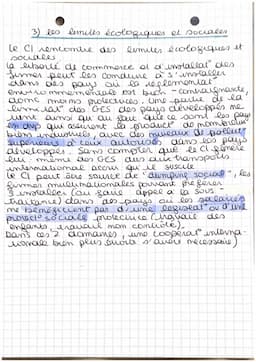 3) les limites écologiques et sociales
Le CI rencontre des limites écologiques et
sociales
La liberté de commerce et d'installat° des
firmes peut les conduire à s'installer
dans des pays où la réglementat°
environnementale est bien - contraignante,
donc moins protectrice. Une partie de la
des GES des pays développés ne
vient ainsi qu au fait que ce sont les pays
en dvp qui assurent la product° de nombreux
biens industriels, avec des niveaux de pollut°
supérieurs à ceux autorisés dans les pays
développés. Sans compter que le CI génère
lui-même des GES dus aux transports
internationaux accrus qu'il suscite
Le CI peut être source de "dumping social", les
firmes multinationales pouvant préférer
s'installer (ou faire appel à la sous-
traitance) dans des pays où les salariés
ne bénéficient pas d'une législat° ou d'une
protect° sociale protectrice (travail des
enfants, travail non contrôlé).
Dans ces 2 domaines, une coopérat° interna-
tionale bien plus forte s'avère nécessaire)